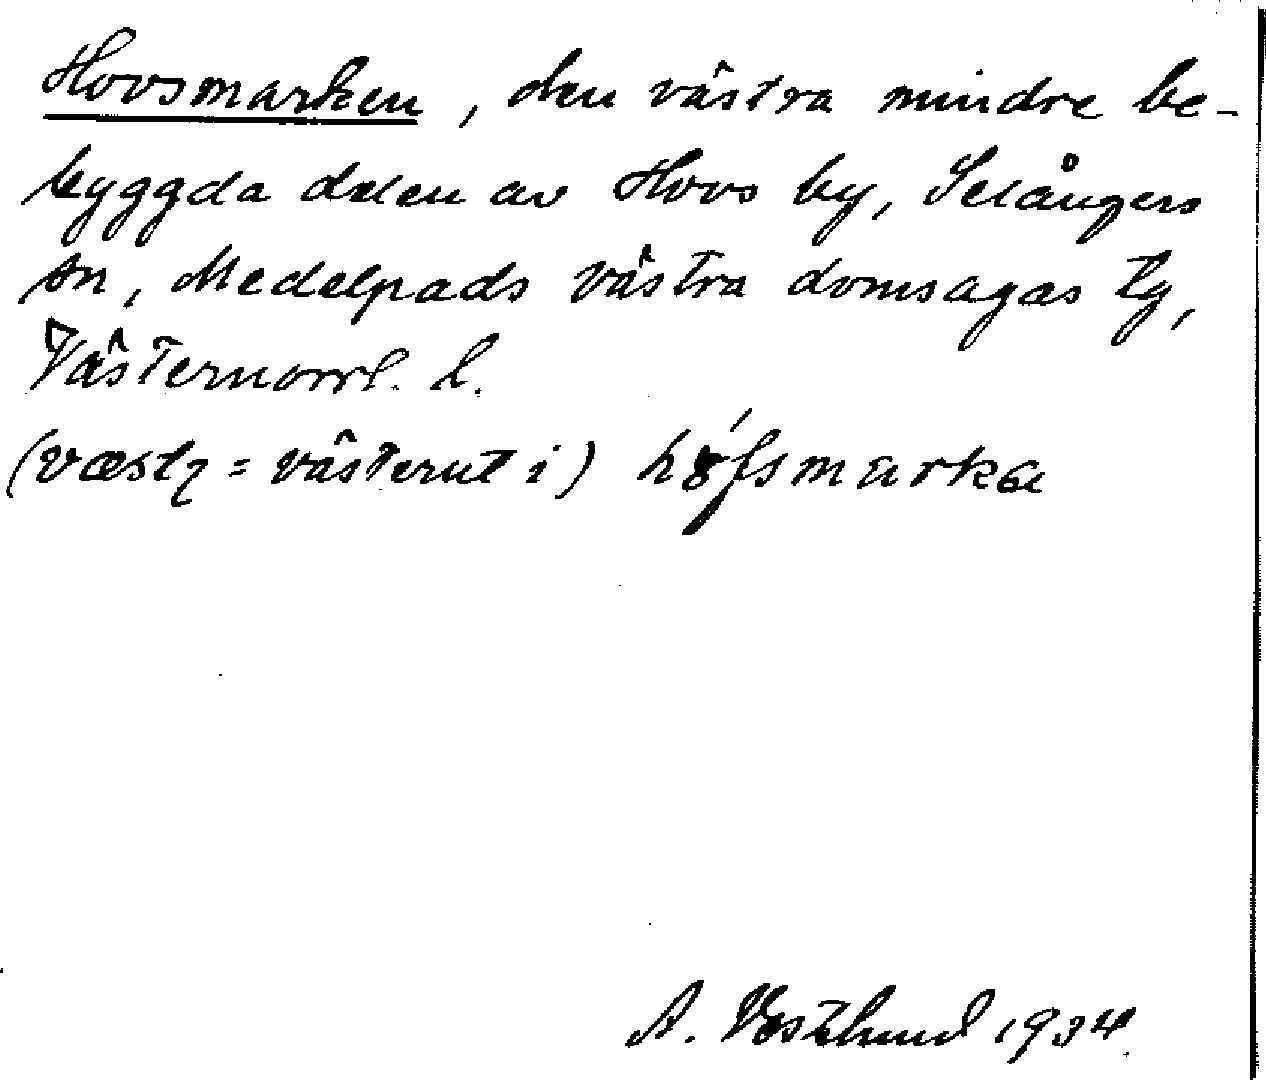 Hovsmarken, den västra mindre be-
byggda delen av Hovs by, Selångers
sn, Medelpads västra domsagas tg,
Västernorrl. l.
(væstɩ = västerut i) hǿfsmarka
A. Westlund 1934